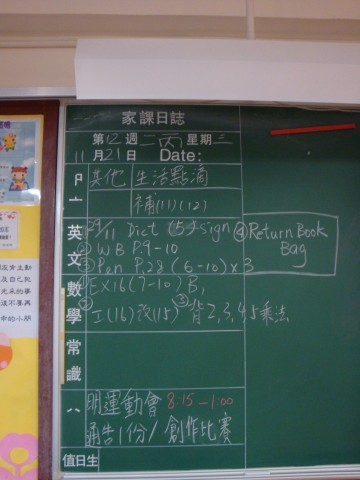 家課日誌
第12週 二丙 星期三
11月21日 Date:
其他 生活點滴
補(11)(12)
英文 29/11 Dict sign
② WB P.9-10
③ Pen P.28 (6-10)×3
④ Return Book
Bag
數學 EX16(7-10) B,
② 工(16)改(15) ③ 背2,3,4,5乘法
常識
八 明運動會 8:15-1:00
通告1份/創作比賽
值日生